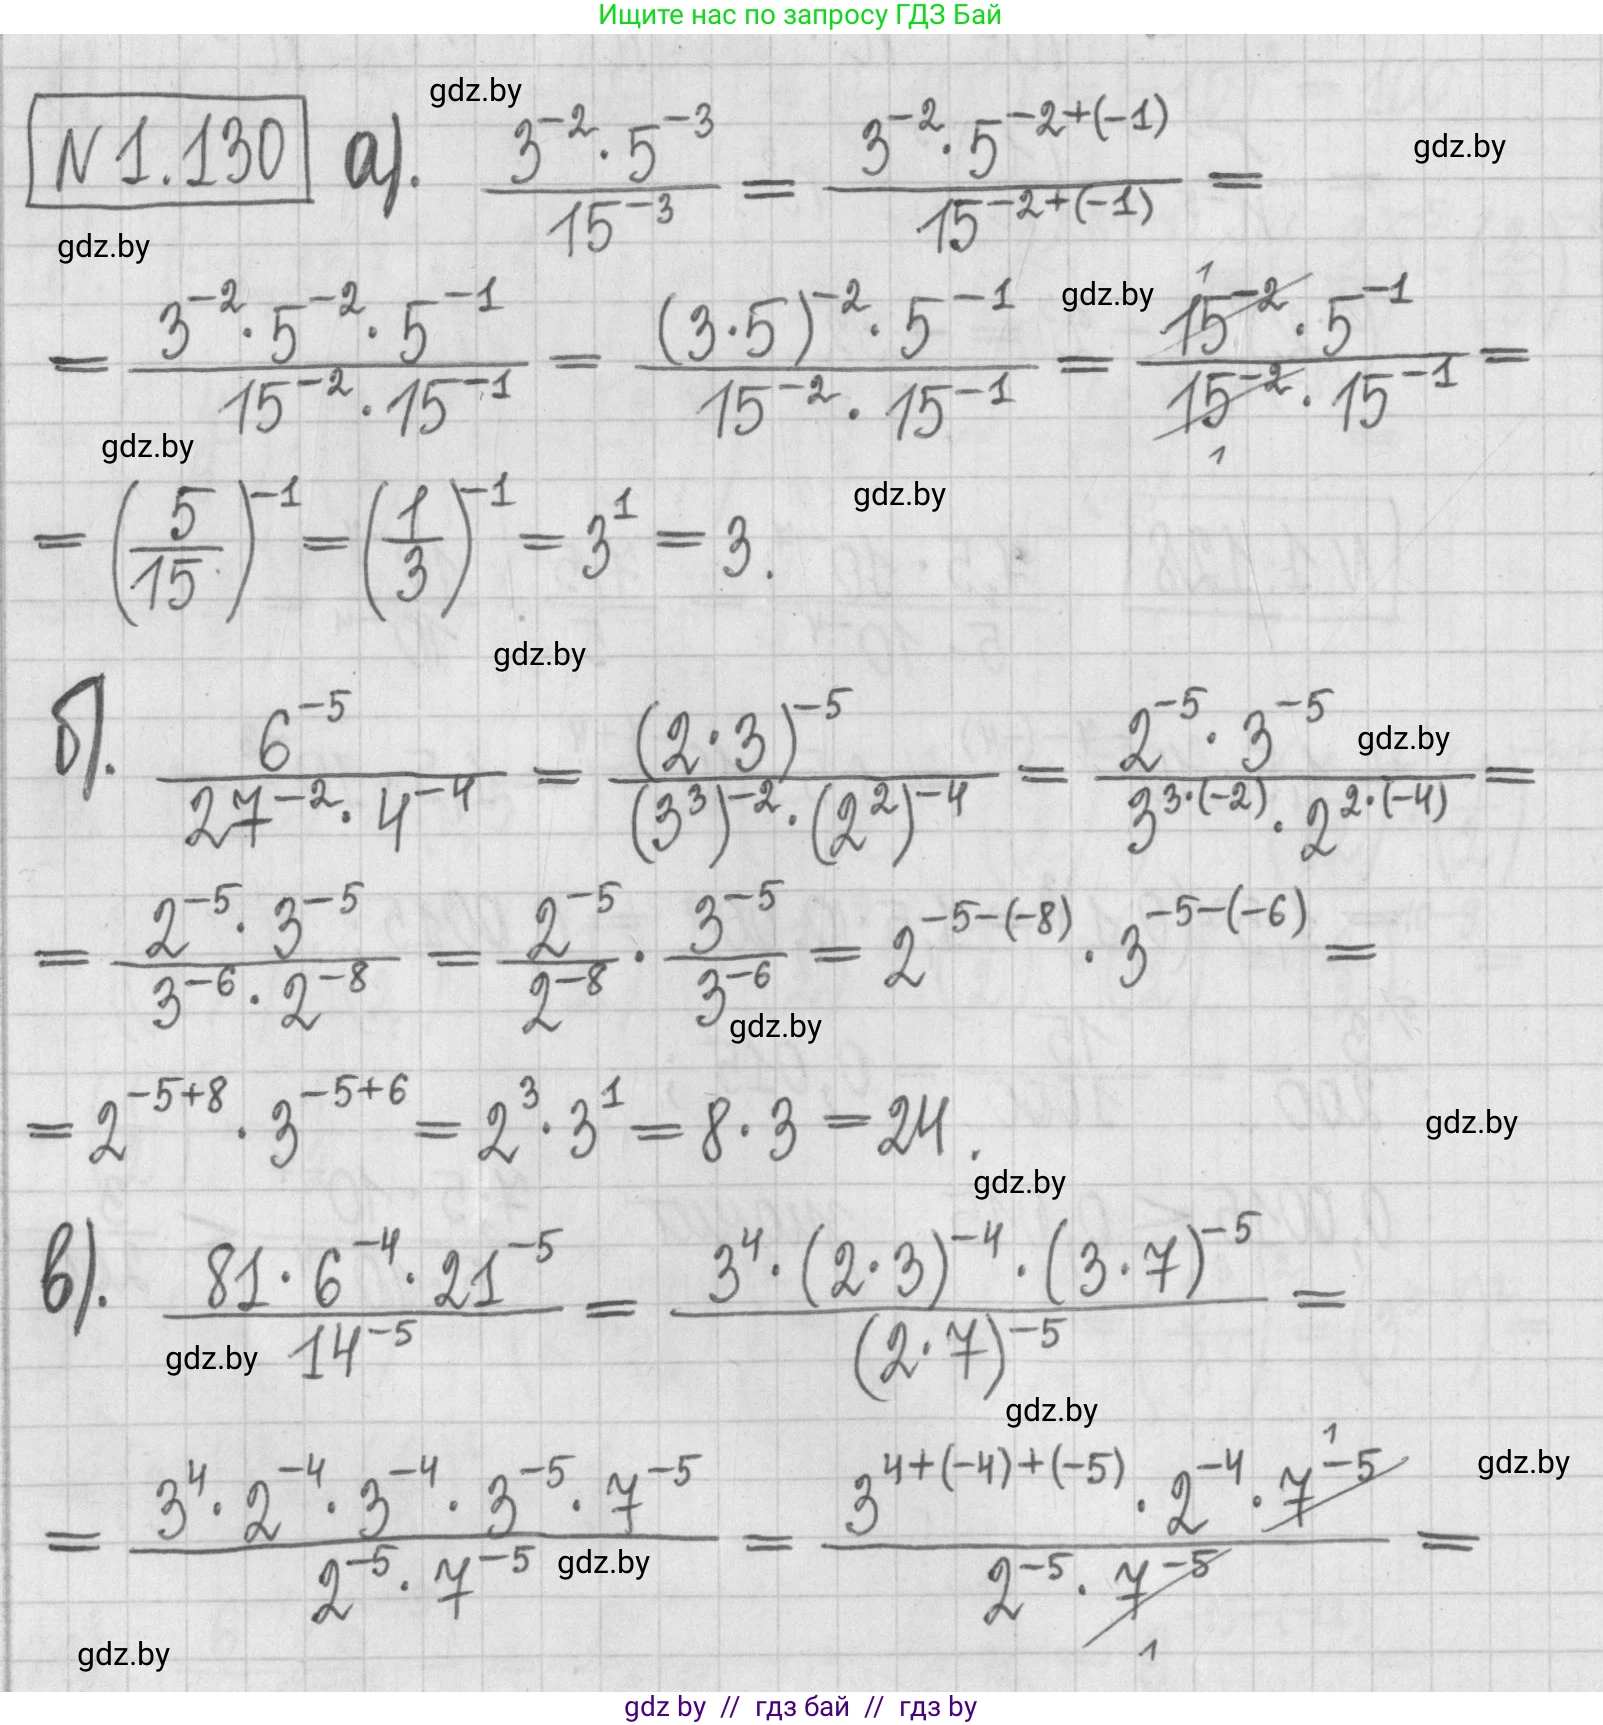 Ищите нас по запросу ГДЗ Бай
gdz.by
N 1.130 а). \frac{3^{-2} \cdot 5^{-3}}{15^{-3}} = \frac{3^{-2} \cdot 5^{-2+(-1)}}{15^{-2+(-1)}} =
gdz.by
gdz.by
gdz.by
= \frac{3^{-2} \cdot 5^{-2} \cdot 5^{-1}}{15^{-2} \cdot 15^{-1}} = \frac{(3 \cdot 5)^{-2} \cdot 5^{-1}}{15^{-2} \cdot 15^{-1}} = \frac{15^{-2} \cdot 5^{-1}}{15^{-2} \cdot 15^{-1}} =
1
1
gdz.by
gdz.by
= (\frac{5}{15})^{-1} = (\frac{1}{3})^{-1} = 3^1 = 3.
gdz.by
б). \frac{6^{-5}}{27^{-2} \cdot 4^{-4}} = \frac{(2 \cdot 3)^{-5}}{(3^3)^{-2} \cdot (2^2)^{-4}} = \frac{2^{-5} \cdot 3^{-5}}{3^{3 \cdot (-2)} \cdot 2^{2 \cdot (-4)}} =
gdz.by
= \frac{2^{-5} \cdot 3^{-5}}{3^{-6} \cdot 2^{-8}} = \frac{2^{-5}}{2^{-8}} \cdot \frac{3^{-5}}{3^{-6}} = 2^{-5-(-8)} \cdot 3^{-5-(-6)} =
gdz.by
= 2^{-5+8} \cdot 3^{-5+6} = 2^3 \cdot 3^1 = 8 \cdot 3 = 24.
gdz.by
gdz.by
в). \frac{81 \cdot 6^{-4} \cdot 21^{-5}}{14^{-5}} = \frac{3^4 \cdot (2 \cdot 3)^{-4} \cdot (3 \cdot 7)^{-5}}{(2 \cdot 7)^{-5}} =
gdz.by
gdz.by
gdz.by
= \frac{3^4 \cdot 2^{-4} \cdot 3^{-4} \cdot 3^{-5} \cdot 7^{-5}}{2^{-5} \cdot 7^{-5}} = \frac{3^{4+(-4)+(-5)} \cdot 2^{-4} \cdot 7^{-5}}{2^{-5} \cdot 7^{-5}} =
1
1
gdz.by
gdz.by
gdz by // гдз бай // гдз by